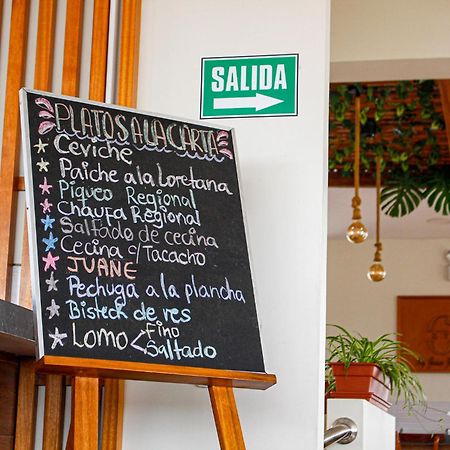 SALIDA
PLATOS A LA CARTA
Ceviche
Paiche a la Loretana
Piqueo Regional
Chaufa Regional
Salfado de cecina
Cecina c/Tacacho
JUANE
Pechuga a la plancha
Bisteck de res
Lomo < Fino
Saltado